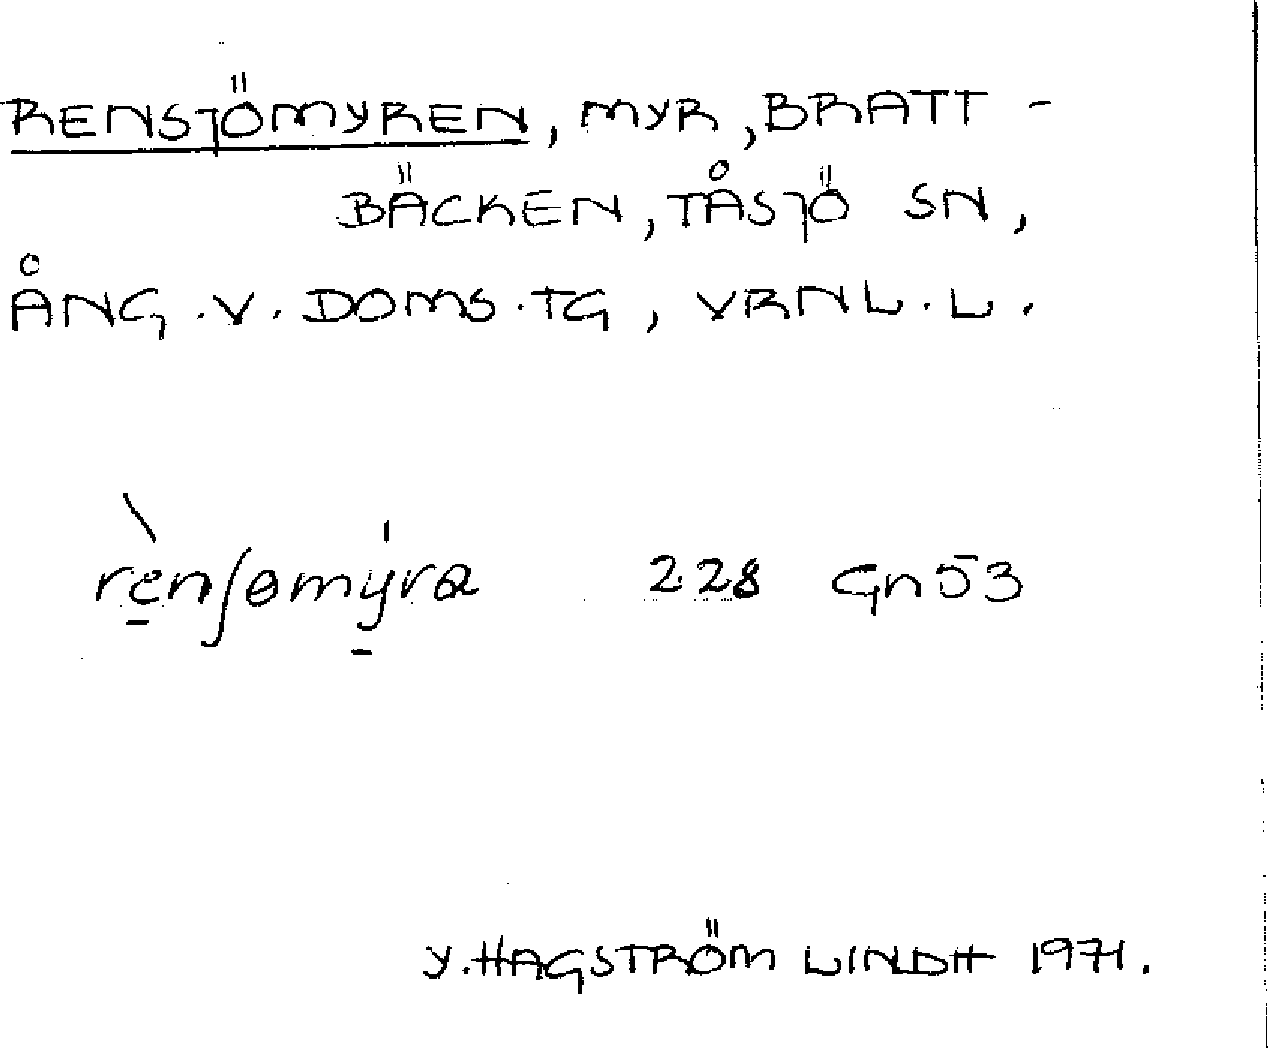 RENSJÖMYREN, MYR, BRATT-
BÄCKEN, TÅSJÖ SN,
ÅNG.V.DOMS.TG, VRNL.L.
rè̠nʃɵmý̠ra 228 Gn53
Y.HAGSTRÖM LINDH 1971.